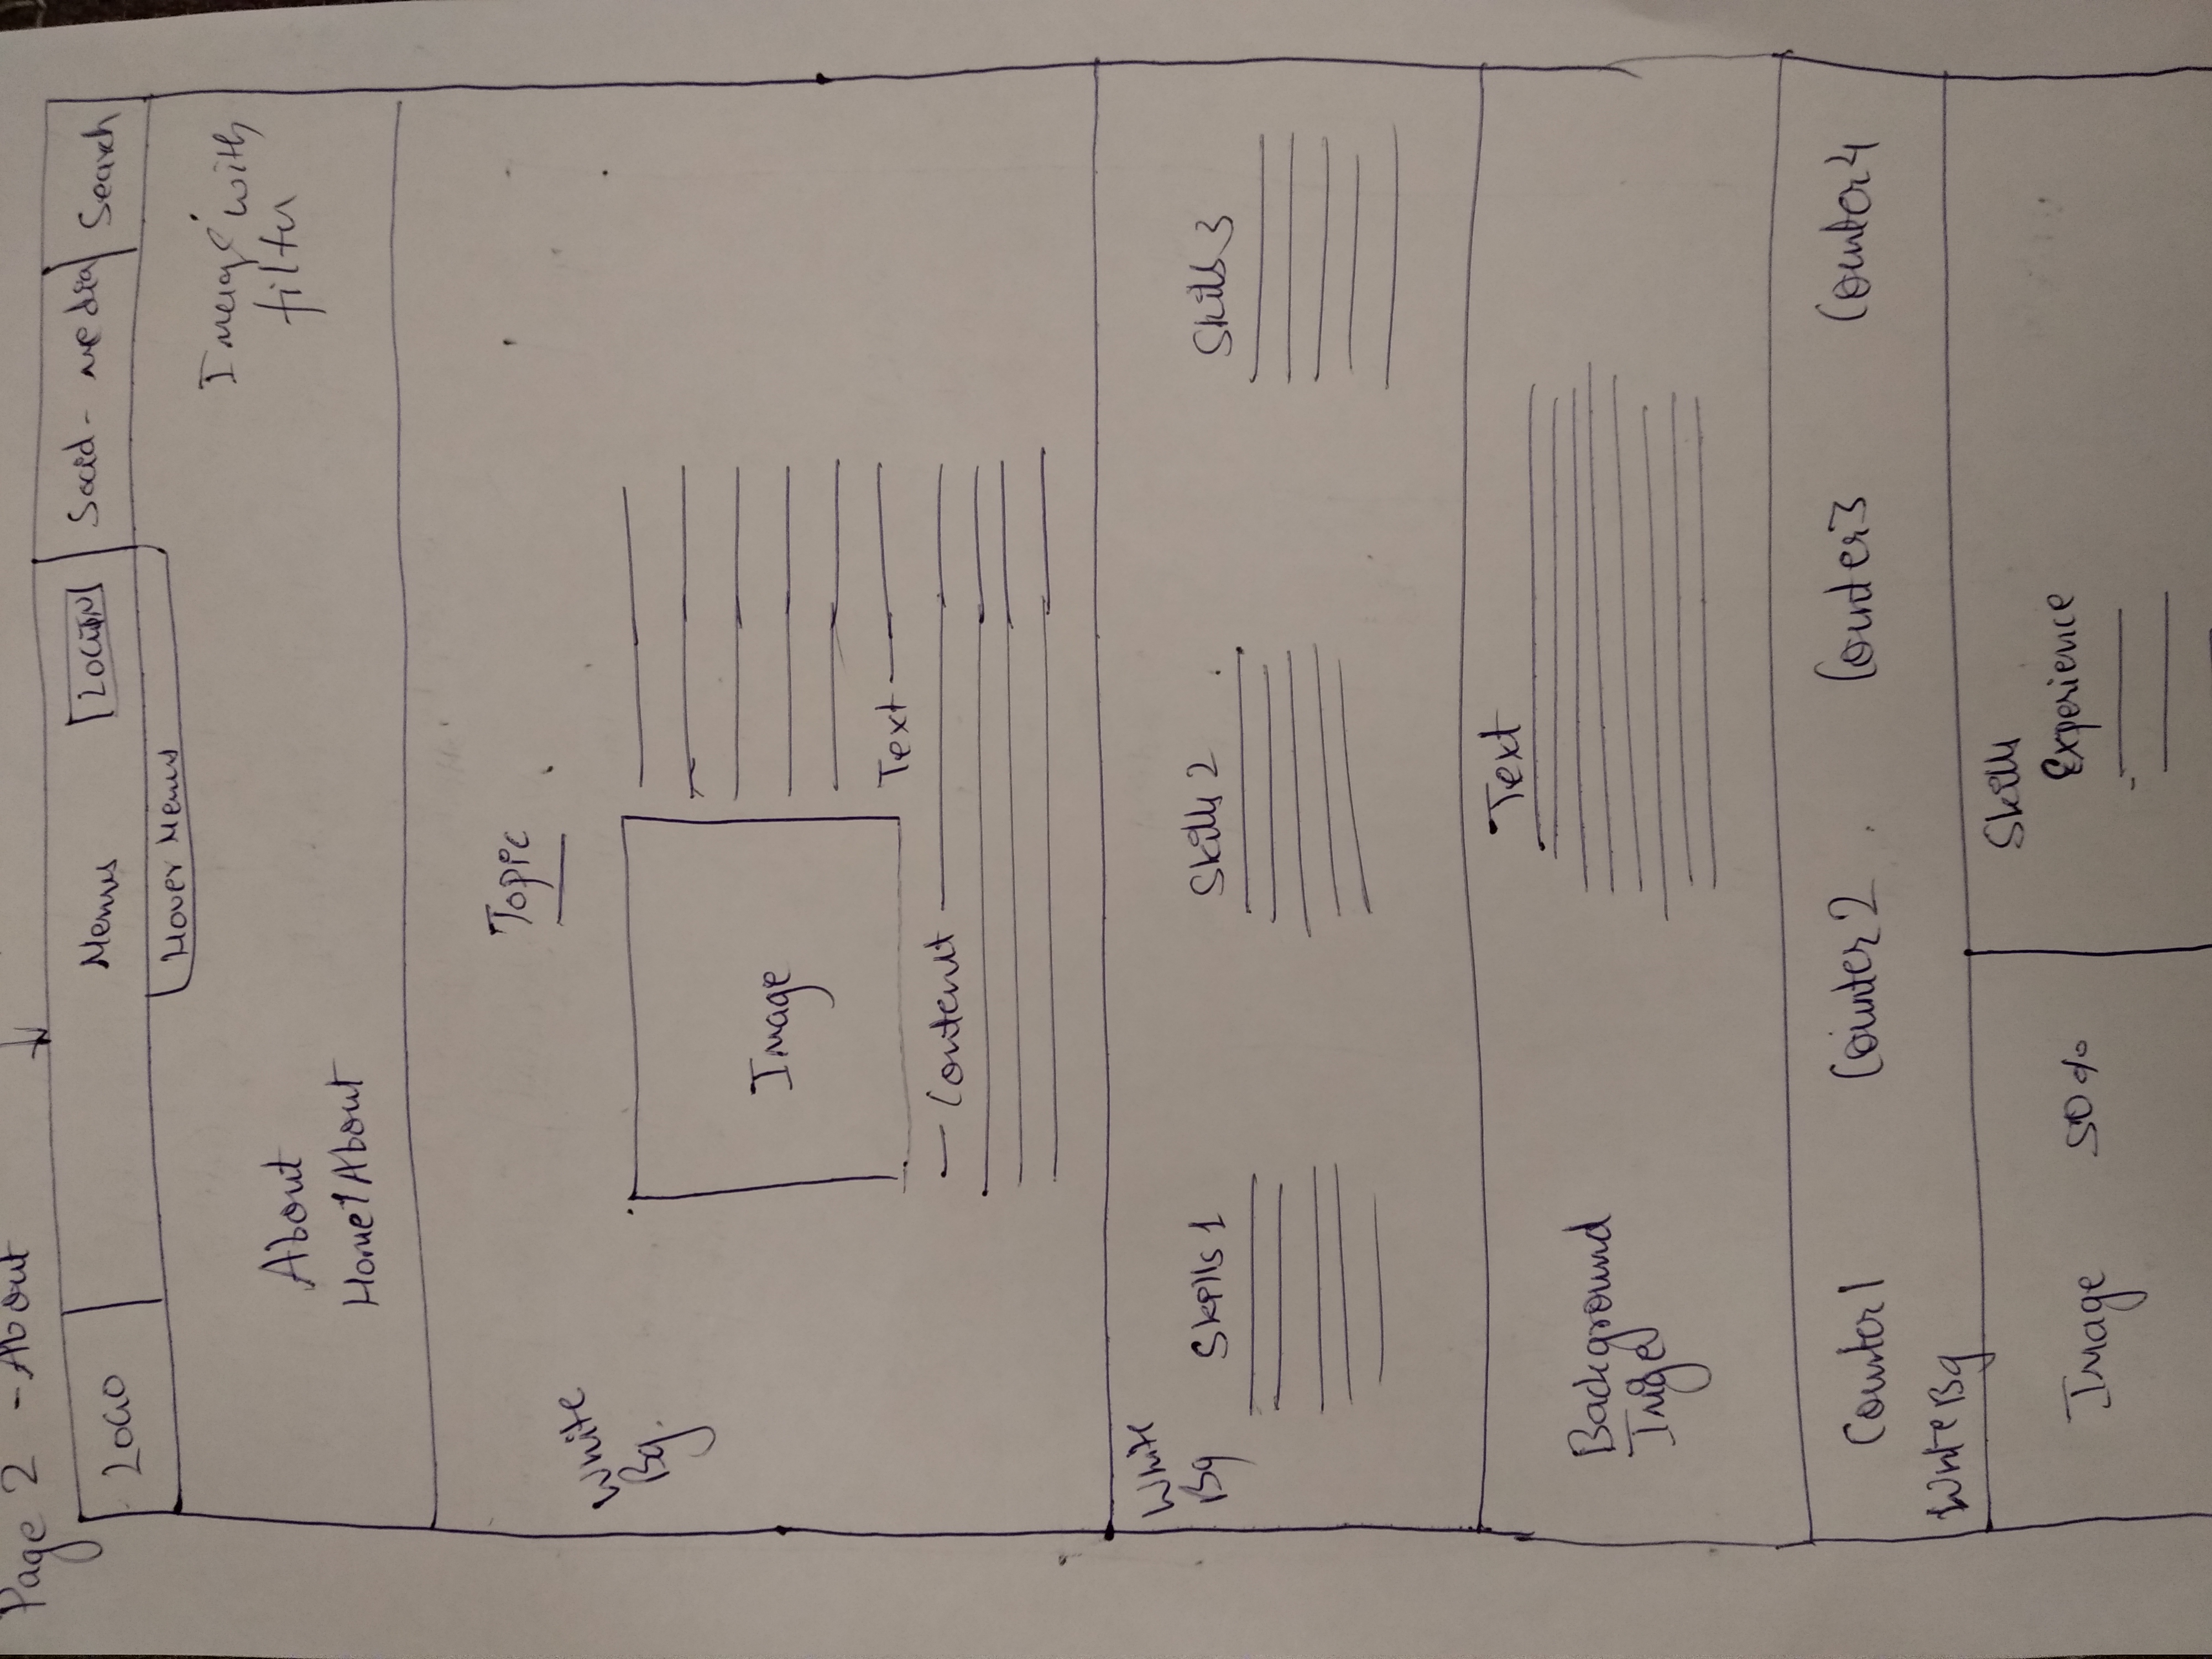 Page 2 - About
LOGO
Menus
LOGIN
Social - media
Search
Hover Menus
Image with
filter
About
Home/About
Topic
White
Bg.
Image
Text
Content
White
Bg
Skills 1
Skills 2
Skills 3
Text
Background
Imge
Counter 1
Counter 2
Counter 3
Counter 4
White Bg
Image 50%
Skills
Experience